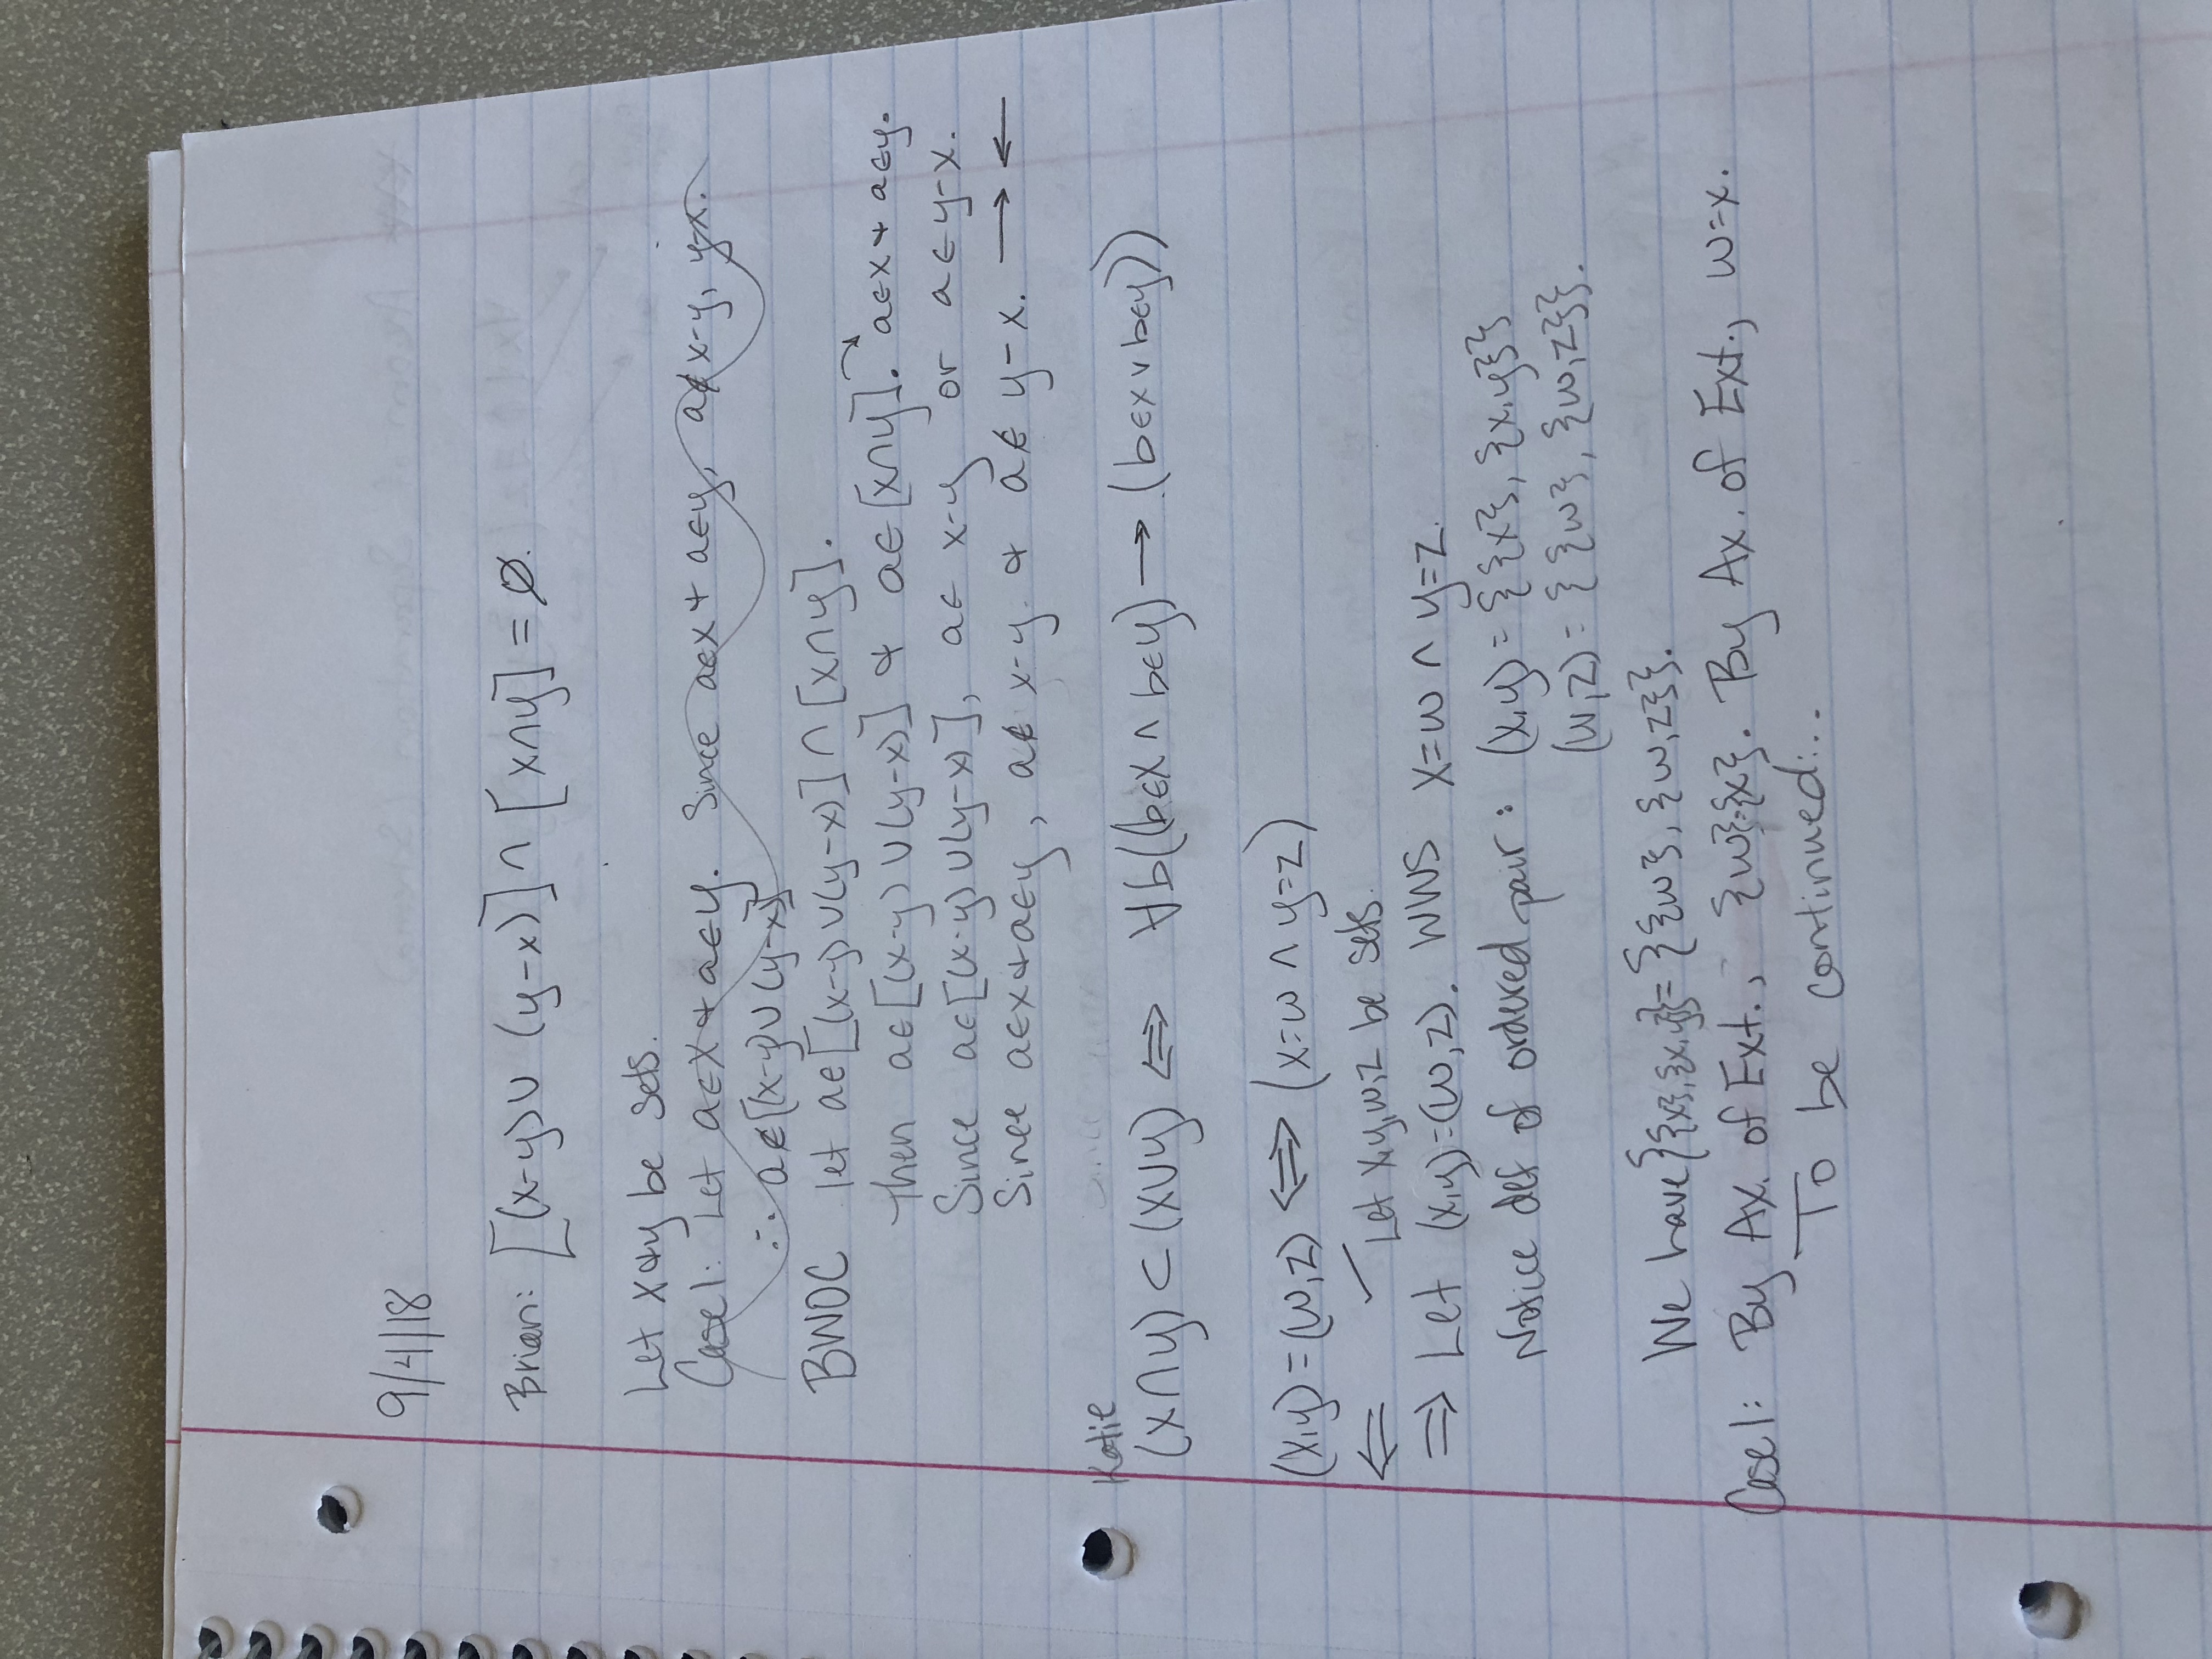 9/4/18
Brian: [(x-y)∪ (y-x)]∩ [x∩y] = ∅.
Let x & y be sets.
Case 1: Let a∈x & a∈y. Since a∈x + a∈y, a∉x-y, y-x.
∴ a∉[(x-y)∪(y-x)]
BWOC let a∈[(x-y)∪(y-x)]∩[x∩y].
Then a∈[(x-y)∪(y-x)] & a∈[x∩y]. a∈x + a∈y.
Since a∈[(x-y)∪(y-x)], a∈ x-y or a∈y-x.
Since a∈x & a∈y, a∉ x-y & a∉ y-x. → ←
Katie
(x∩y)⊂(x∪y) ⇔ ∀b((b∈x ∧ b∈y) → (b∈x ∨ b∈y))
(x,y)=(w,z) ⇔ (x=w ∧ y=z)
⇐ ✓ Let x,y,w,z be sets.
⇒ Let (x,y)=(w,z). WWS x=w ∧ y=z.
Notice def of ordered pair: (x,y) = {{x}, {x,y}}
(w,z) = {{w}, {w,z}}.
We have {{x},{x,y}} = {{w}, {w,z}}.
Case 1: By Ax. of Ext., {w}={x}. By Ax. of Ext., w=x.
To be continued...